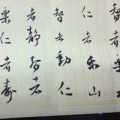 智者樂水
仁者乐山
智者動仁
者靜智者
樂仁者壽